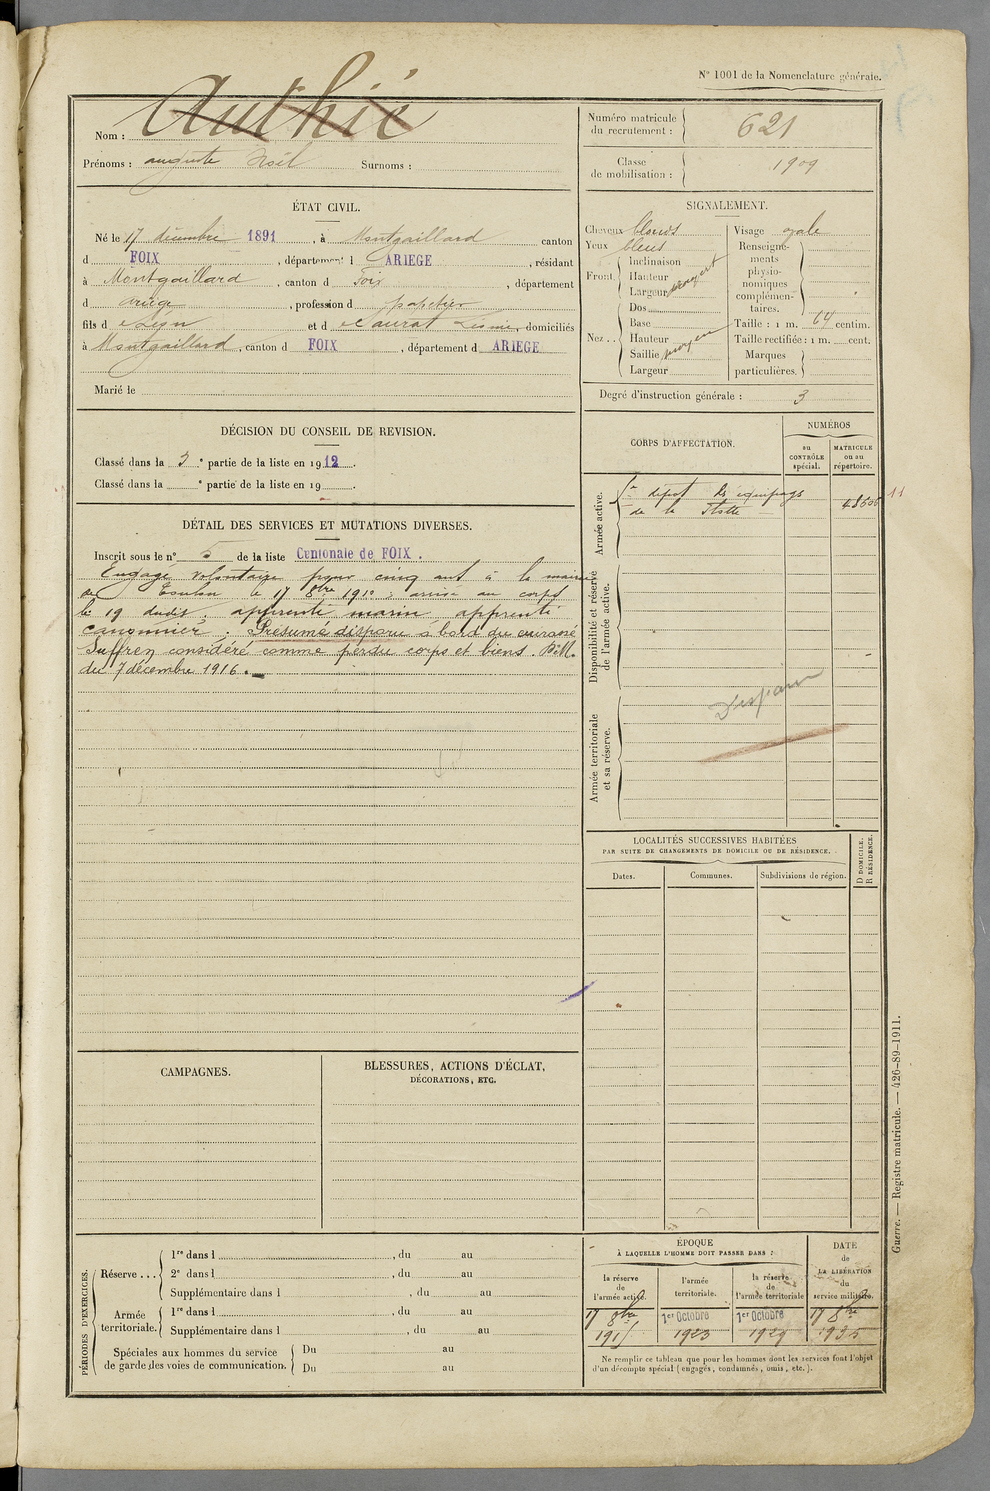 N° 1001 de la Nomenclature générale.
Nom : Authié
Prénoms : auguste Noël Surnoms :
Numéro matricule du recrutement : 621
Classe de mobilisation : 1909
ÉTAT CIVIL.
Né le 17 décembre 1891, à Montgaillard canton
d FOIX, département d ARIEGE, résidant
à Montgaillard, canton d Foix, département
d ariège, profession d papetier
fils d e Léon et d e Saurat, domiciliés
à Montgaillard, canton d FOIX, département d ARIEGE
Marié le
SIGNALEMENT.
Cheveux blonds
Yeux bleus
Front.
Inclinaison
Hauteur
Largeur moyen
Nez..
Dos
Base
Hauteur
Saillie moyen
Largeur
Visage ovale
Renseignements physionomiques complémentaires.
Taille : 1 m. 64 centim.
Taille rectifiée : 1 m. cent.
Marques particulières.
Degré d'instruction générale : 3
DÉCISION DU CONSEIL DE REVISION.
Classé dans la 3e partie de la liste en 1912.
Classé dans la e partie de la liste en 19 .
DÉTAIL DES SERVICES ET MUTATIONS DIVERSES.
Inscrit sous le n° 5 de la liste Cantonale de FOIX.
Engagé volontaire pour cinq ans à la mairie
de Toulon le 17 8bre 1910 ; arrivé au corps
le 19 dudit ; apprenti marin, apprenti
canonnier. Présumé disparu à bord du cuirassé
Suffren considéré comme perdu corps et biens. B.M.
du 7 décembre 1916.
CORPS D'AFFECTATION.
NUMÉROS
au CONTRÔLE spécial.
MATRICULE ou au répertoire.
Armée active.
5e dépôt des équipages
de la Flotte
11
Disponibilité et réserve de l'armée active.
Disparu
Armée territoriale et sa réserve.
LOCALITÉS SUCCESSIVES HABITÉES
PAR SUITE DE CHANGEMENTS DE DOMICILE OU DE RÉSIDENCE.
Dates.
Communes.
Subdivisions de région.
D DOMICILE.
R RÉSIDENCE.
CAMPAGNES.
BLESSURES, ACTIONS D'ÉCLAT,
DÉCORATIONS, ETC.
PÉRIODES D'EXERCICES.
Réserve...
1re dans l , du au
2e dans l , du au
Supplémentaire dans l , du au
Armée territoriale.
1re dans l , du au
Supplémentaire dans l , du au
Spéciales aux hommes du service de garde des voies de communication.
Du au
Du au
ÉPOQUE
À LAQUELLE L'HOMME DOIT PASSER DANS :
la réserve de l'armée active.
l'armée territoriale.
la réserve de l'armée territoriale
DATE de LA LIBÉRATION du service militaire.
17 8bre 1915
1er Octobre 1923
1er Octobre 1929
17 8bre 1935
Ne remplir ce tableau que pour les hommes dont les services font l'objet
d'un décompte spécial (engagés, condamnés, omis, etc.).
Guerre. — Registre matricule. — 426-89-1911.